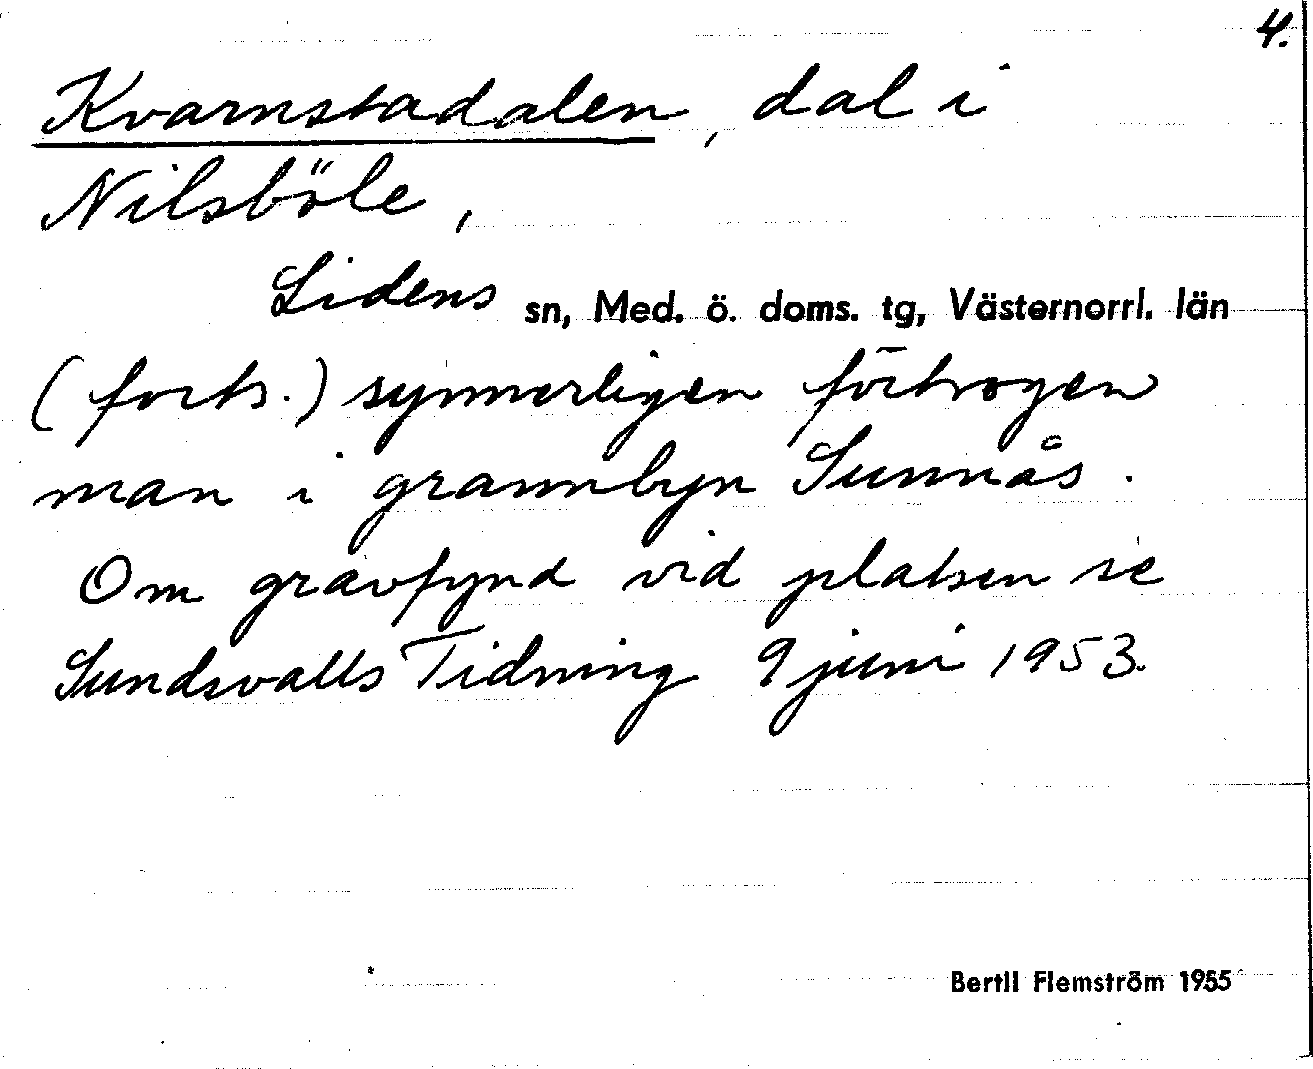 4.
Kvarnstadalen, dal i
Nilsböle,
Lidens sn, Med. ö. doms. tg, Västernorrl. län
(forts.) synnerligen förtrogen
man i grannbyn Sunnås.
Om gravfynd vid platsen se
Sundsvalls Tidning 9 juni 1953.
Bertil Flemström 1955